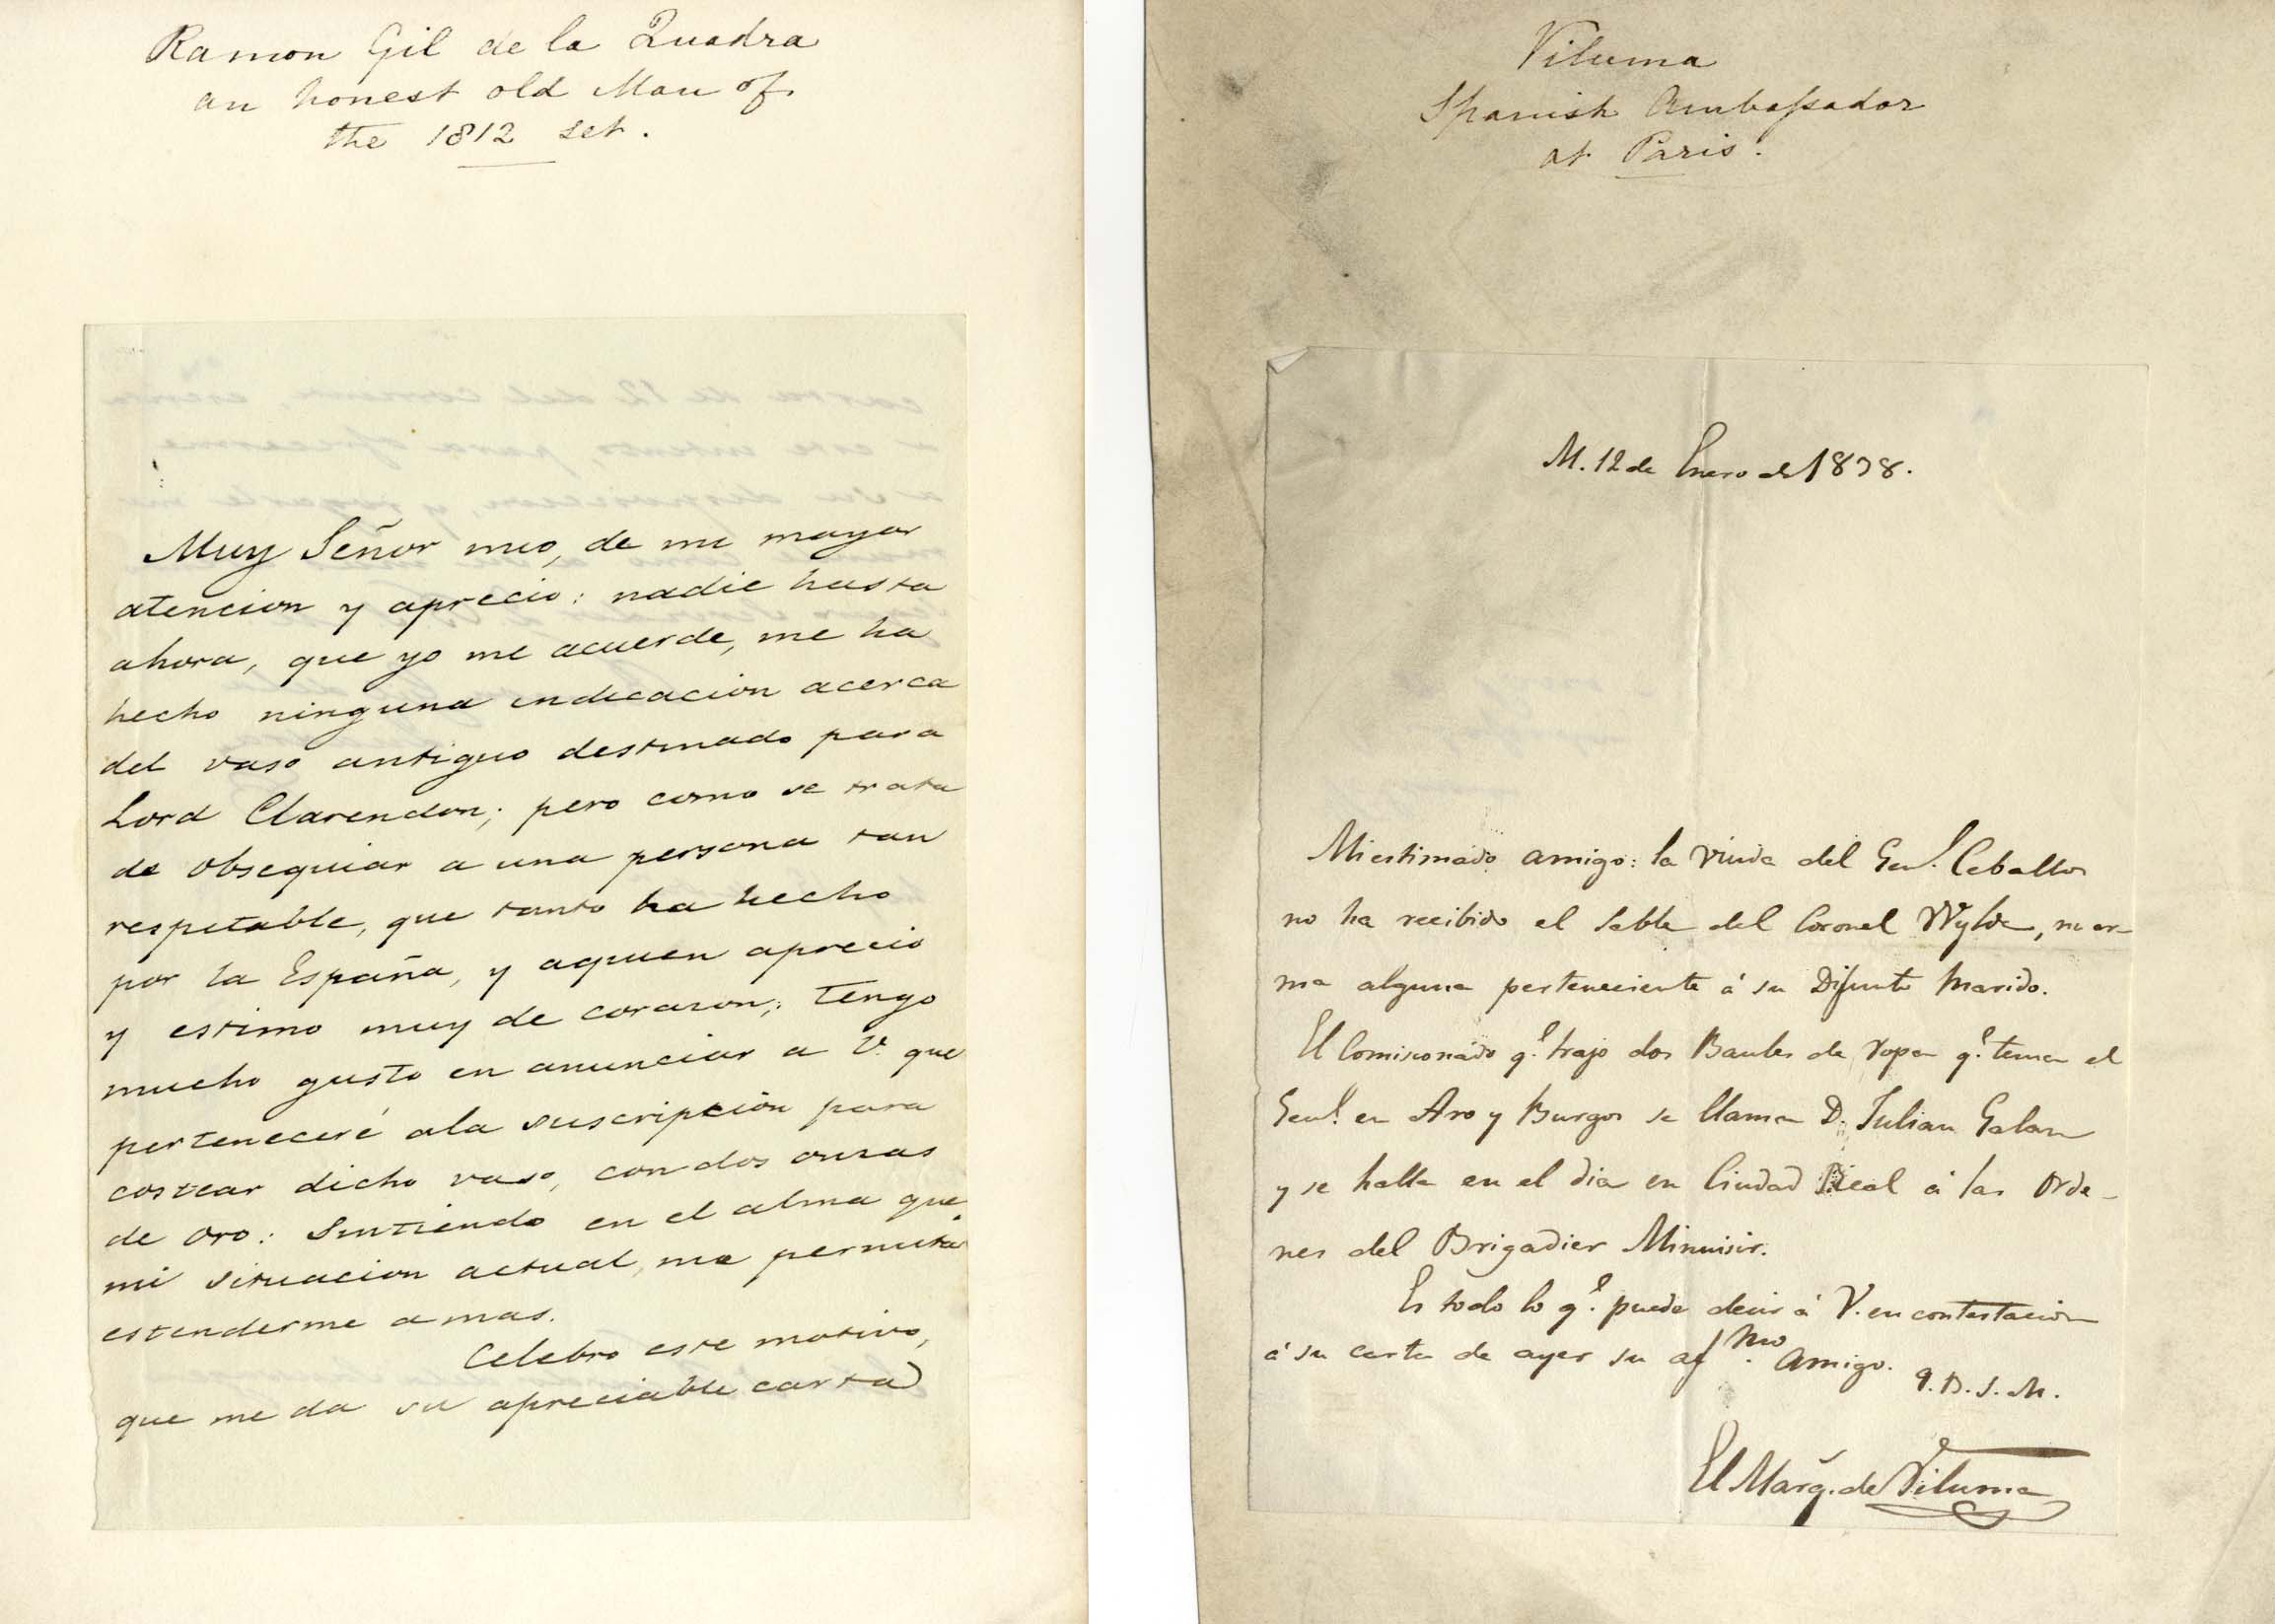 Ramon Gil de la Quadra
an honest old Man of
the 1812 set.
Muy Señor mio, de mi mayor
atencion y aprecio: nadie hasta
ahora, que yo me acuerde, me ha
hecho ninguna indicacion acerca
del vaso antiguo destinado para
Lord Clarendon; pero como se trata
de obsequiar a una persona tan
respetable, que tanto ha hecho
por la España, y aquien aprecio
y estimo muy de corazon; tengo
mucho gusto en anunciar a V. que
perteneceré ala suscripcion para
costear dicho vaso, con dos onzas
de oro: Sintiendo en el alma que
mi situacion actual, me permita
estenderme a mas.
Celebro este motivo,
que me da su apreciable carta
Viluma
Spanish Ambassador
at Paris.
M. 12 de Enero de 1838.
Mi estimado amigo: la viuda del Genl. Ceballos
no ha recibido el Sable del Coronel Wylde, ni ar-
ma alguna perteneciente á su Difunto Marido.
El Comisionado q.e trajo dos Baules de ropa q.e tenia el
Genl. en Aro y Burgos se llama D. Julian Galan
y se halla en el dia en Ciudad Real á las Orde-
nes del Brigadier Minuisir.
Es todo lo q.e puede decir á V. en contestacion
á su carta de ayer su affmo. Amigo. Q.B.S.M.
El Marq. de Viluma